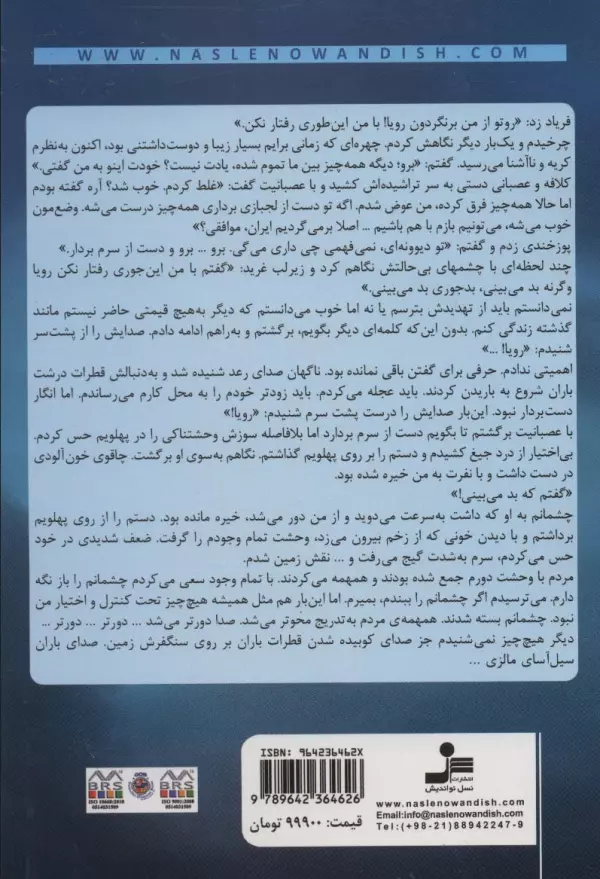 WWW.NASLENOWANDISH.COM
فریاد زد: «روتو از من برنگردون رویا! با من این‌طوری رفتار نکن.»
چرخیدم و یک‌بار دیگر نگاهش کردم. چهره‌ای که زمانی برایم بسیار زیبا و دوست‌داشتنی بود، اکنون به‌نظرم
کریه و ناآشنا می‌رسید. گفتم: «برو؛ دیگه همه‌چیز بین ما تموم شده، یادت نیست؟ خودت اینو به من گفتی.»
کلافه و عصبانی دستی به سر تراشیده‌اش کشید و با عصبانیت گفت: «غلط کردم. خوب شد؟ آره گفته بودم
اما حالا همه‌چیز فرق کرده، من عوض شدم. اگه تو دست از لجبازی برداری همه‌چیز درست می‌شه. وضع‌مون
خوب می‌شه، می‌تونیم بازم با هم باشیم ... اصلا برمی‌گردیم ایران، موافقی؟»
پوزخندی زدم و گفتم: «تو دیوونه‌ای، نمی‌فهمی چی داری می‌گی. برو ... برو و دست از سرم بردار.»
چند لحظه‌ای با چشمهای بی‌حالتش نگاهم کرد و زیرلب غرید: «گفتم با من این‌جوری رفتار نکن رویا
وگرنه بد می‌بینی، بدجوری بد می‌بینی.»
نمی‌دانستم باید از تهدیدش بترسم یا نه اما خوب می‌دانستم که دیگر به‌هیچ قیمتی حاضر نیستم مانند
گذشته زندگی کنم. بدون این‌که کلمه‌ای دیگر بگویم، برگشتم و به‌راهم ادامه دادم. صدایش را از پشت‌سر
شنیدم: «رویا! ...»
اهمیتی ندادم. حرفی برای گفتن باقی نمانده بود. ناگهان صدای رعد شنیده شد و به‌دنبالش قطرات درشت
باران شروع به باریدن کردند. باید عجله می‌کردم. باید زودتر خودم را به محل کارم می‌رساندم. اما انگار
دست‌بردار نبود. این‌بار صدایش را درست پشت سرم شنیدم: «رویا!»
با عصبانیت برگشتم تا بگویم دست از سرم بردارد اما بلافاصله سوزش وحشتناکی را در پهلویم حس کردم.
بی‌اختیار از درد جیغ کشیدم و دستم را بر روی پهلویم گذاشتم. نگاهم به‌سوی او برگشت. چاقوی خون‌آلودی
در دست داشت و با نفرت به من خیره شده بود.
«گفتم که بد می‌بینی!»
چشمانم به او که داشت به‌سرعت می‌دوید و از من دور می‌شد، خیره مانده بود. دستم را از روی پهلویم
برداشتم و با دیدن خونی که از زخم بیرون می‌زد، وحشت تمام وجودم را گرفت. ضعف شدیدی در خود
حس می‌کردم، سرم به‌شدت گیج می‌رفت و ... نقش زمین شدم.
مردم با وحشت دورم جمع شده بودند و همهمه می‌کردند. با تمام وجود سعی می‌کردم چشمانم را باز نگه
دارم. می‌ترسیدم اگر چشمانم را ببندم، بمیرم. اما این‌بار هم مثل همیشه هیچ‌چیز تحت کنترل و اختیار من
نبود. چشمانم بسته شدند. همهمه‌ی مردم به‌تدریج محوتر می‌شد. صدا دورتر می‌شد ... دورتر ... دورتر ...
دیگر هیچ‌چیز نمی‌شنیدم جز صدای کوبیده شدن قطرات باران بر روی سنگفرش زمین. صدای باران
سیل‌آسای مالزی ...
ISBN: 964236462X
9 789642 364626
قیمت: ۹۹۹۰۰ تومان
انتشارات
نسل نواندیش
www.naslenowandish.com
Email:info@naslenowandish.com
Tel:(+98-21)88942247-9
BRS
BRS